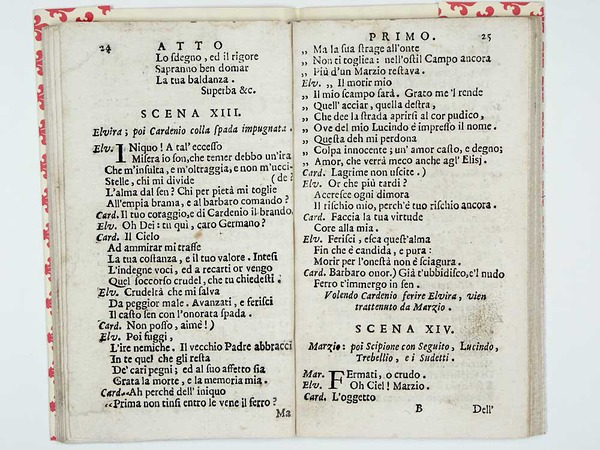 24 ATTO
Lo sdegno, ed il rigore
Sapranno ben domar
La tua baldanza.
Superba &c.
SCENA XIII.
Elvira; poi Cardenio colla spada impugnata.
Elv. INiquo! A tal' eccesso
Misera io son, che temer debbo un'ira
Che m'insulta, e m'oltraggia, e non m'ucci-
Stelle, chi mi divide (de?
L'alma dal sen? Chi per pietà mi toglie
All'empia brama, e al barbaro comando?
Card. Il tuo coraggio, e di Cardenio il brando.
Elv. Oh Dei: tu quì, caro Germano?
Card. Il Cielo
Ad ammirar mi trasse
La tua costanza, e il tuo valore. Intesi
L'indegne voci, ed a recarti or vengo
Quel soccorso crudel, che tu chiedesti.
Elv. Crudeltà che mi salva
Da peggior male. Avanzati, e ferisci
Il casto sen con l'onorata spada.
Card. Non posso, aimè!)
Elv. Poi fuggi,
L'ire nemiche. Il vecchio Padre abbracci
In te quel che gli resta
De' cari pegni; ed al suo affetto sia
Grata la morte, e la memoria mia.
Card. Ah perchè dell' iniquo
„Prima non tinsi entro le vene il ferro?
Ma
PRIMO. 25
„ Ma la sua strage all'onte
„ Non ti togliea: nell'ostil Campo ancora
„ Più d'un Marzio restava.
Elv. „ Il morir mio
„ Il mio scampo sarà. Grato me 'l rende
„ Quell' acciar, quella destra,
„ Che dee la strada aprirsi al cor pudico,
„ Ove del mio Lucindo è impresso il nome.
„ Questa deh mi perdona
„ Colpa innocente; un' amor casto, e degno;
„ Amor, che verrà meco anche agl' Elisj.
Card. Lagrime non uscite.)
Elv. Or che più tardi?
Accresce ogni dimora
Il rischio mio, perch'è tuo rischio ancora.
Card. Faccia la tua virtude
Core alla mia.
Elv. Ferisci, esca quest'alma
Fin che è candida, e pura:
Morir per l'onestà non è sciagura.
Card. Barbaro onor.) Già t'ubbidisco, e'l nudo
Ferro t'immergo in sen.
Volendo Cardenio ferire Elvira, vien
trattenuto da Marzio.
SCENA XIV.
Marzio: poi Scipione con Seguito, Lucindo,
Trebellio, e i Sudetti.
Mar. FErmati, o crudo.
Elv. Oh Ciel! Marzio.
Card. L'oggetto
B Dell'